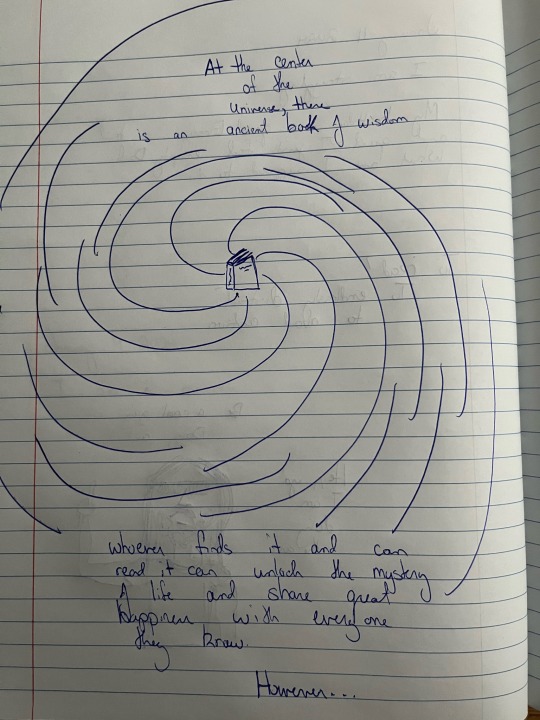 At the center
of the
universe, there
is an ancient book of wisdom
whoever finds it and can
read it can unlock the mystery
of life and share great
happiness with everyone
they know.
However...